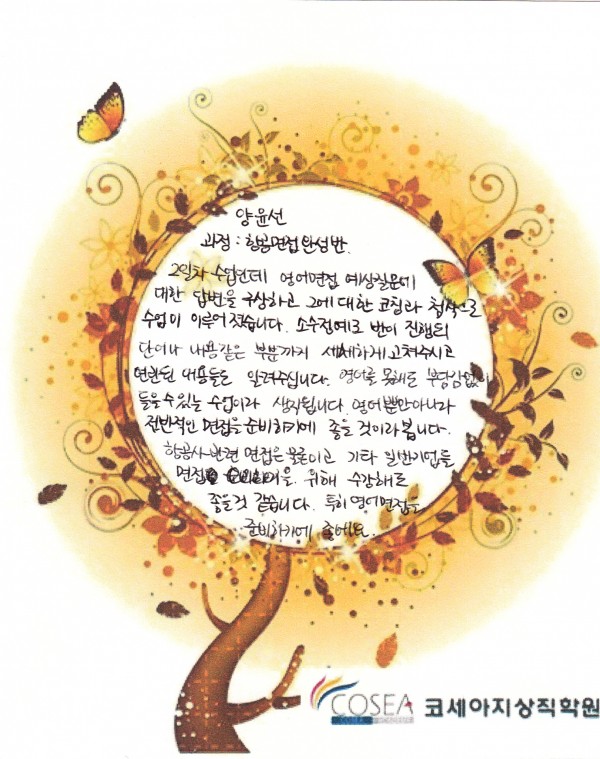 양윤선
과정 : 항공면접완성반
2일차 수업인데 영어면접 예상질문에
대한 답변을 구상하고 그에 대한 코칭과 첨삭으로
수업이 이루어졌습니다. 소수정예로 반이 진행되
단어나 내용같은 부분까지 세세하게 고쳐주시고
연관된 내용들도 알려주십니다. 영어를 못해도 부담감없이
들을 수 있는 수업이라 생각됩니다. 영어뿐만아니라
전반적인 면접을 준비하기에 좋을 것이라 봅니다.
항공사 관련 면접은 물론이고 기타 일반기업들
면접 위해 수강해도
좋을것 같습니다. 특히 영어면접을
준비하기에 좋네요.
COSEA 코세아지상직학원